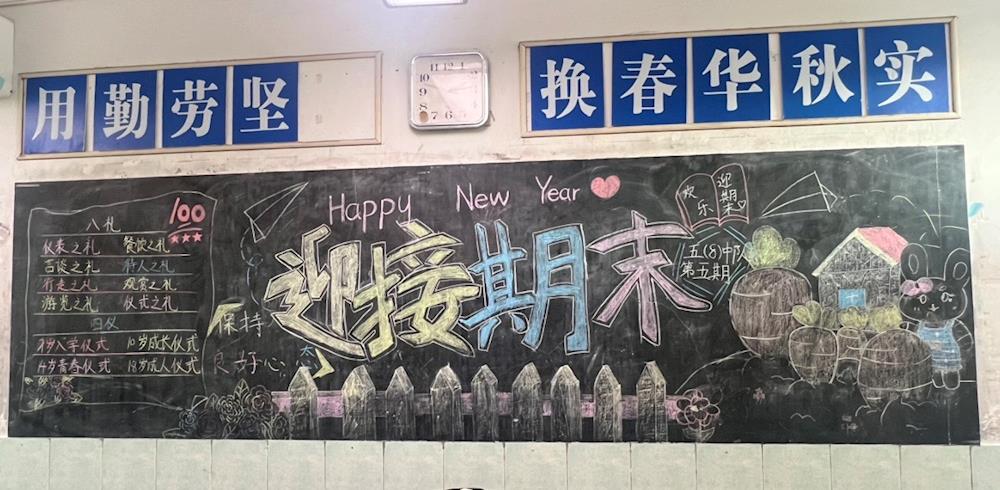 用勤劳坚
换春华秋实
11 12 1
10 2
9
8
7 6
100
八礼
仪表之礼 餐饮之礼
言谈之礼 待人之礼
行走之礼 观赏之礼
游览之礼 仪式之礼
四仪
7岁入学仪式 10岁成长仪式
14岁青春仪式 18岁成人仪式
Happy New Year
迎接期末
保持
良好心态
欢乐
迎期末
五(8)中队
第五期